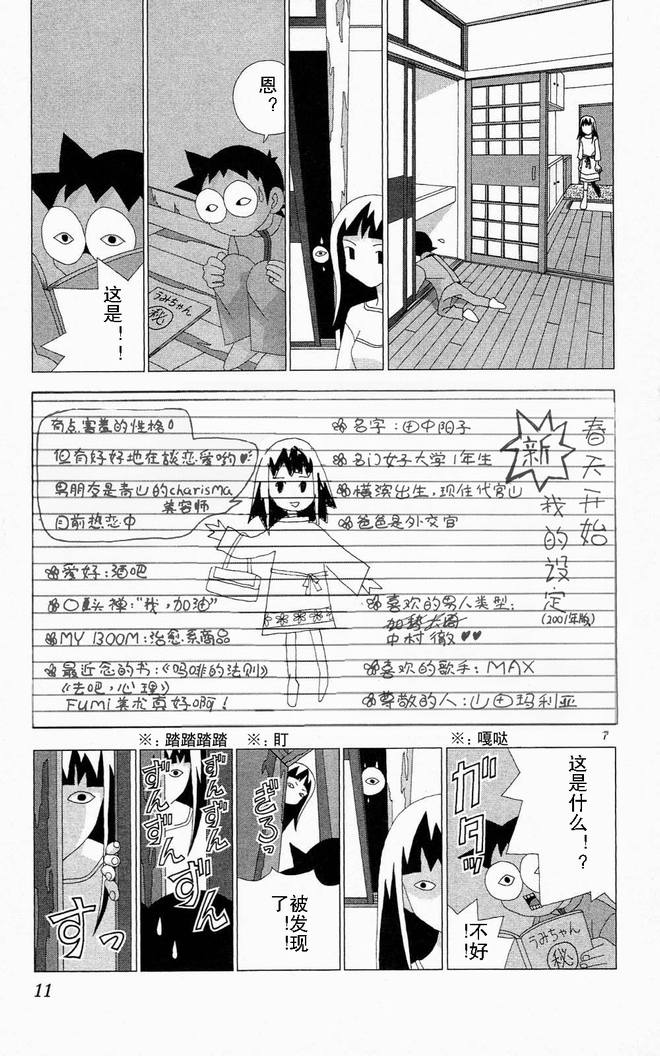 恩？
うみちゃん
㊙
这是！！
春天开始
我的设定
(2001年版)
新
名字：田中阳子
名门女子大学1年生
横滨出生，现住代官山
爸爸是外交官
喜欢的男人类型：
加势大周
中村徹♥♥
喜欢的歌手：MAX
尊敬的人：山田玛利亚
有点害羞的性格
但有好好地在谈恋爱哟♥
男朋友是青山的charisma
美容师
目前热恋中
爱好：酒吧
口头禅："我，加油"
MY BOOM：治愈系商品
最近念的书：《吗啡的法则》
《去吧，心理》
Fumi美术真好啊！
7
※：嘎哒
这是什么！？
ガタッ
不好！
うみちゃん
㊙
※：盯
ぎろっ
被发现了！
※：踏踏踏踏
ずんずん
ずんずん
すっ
11